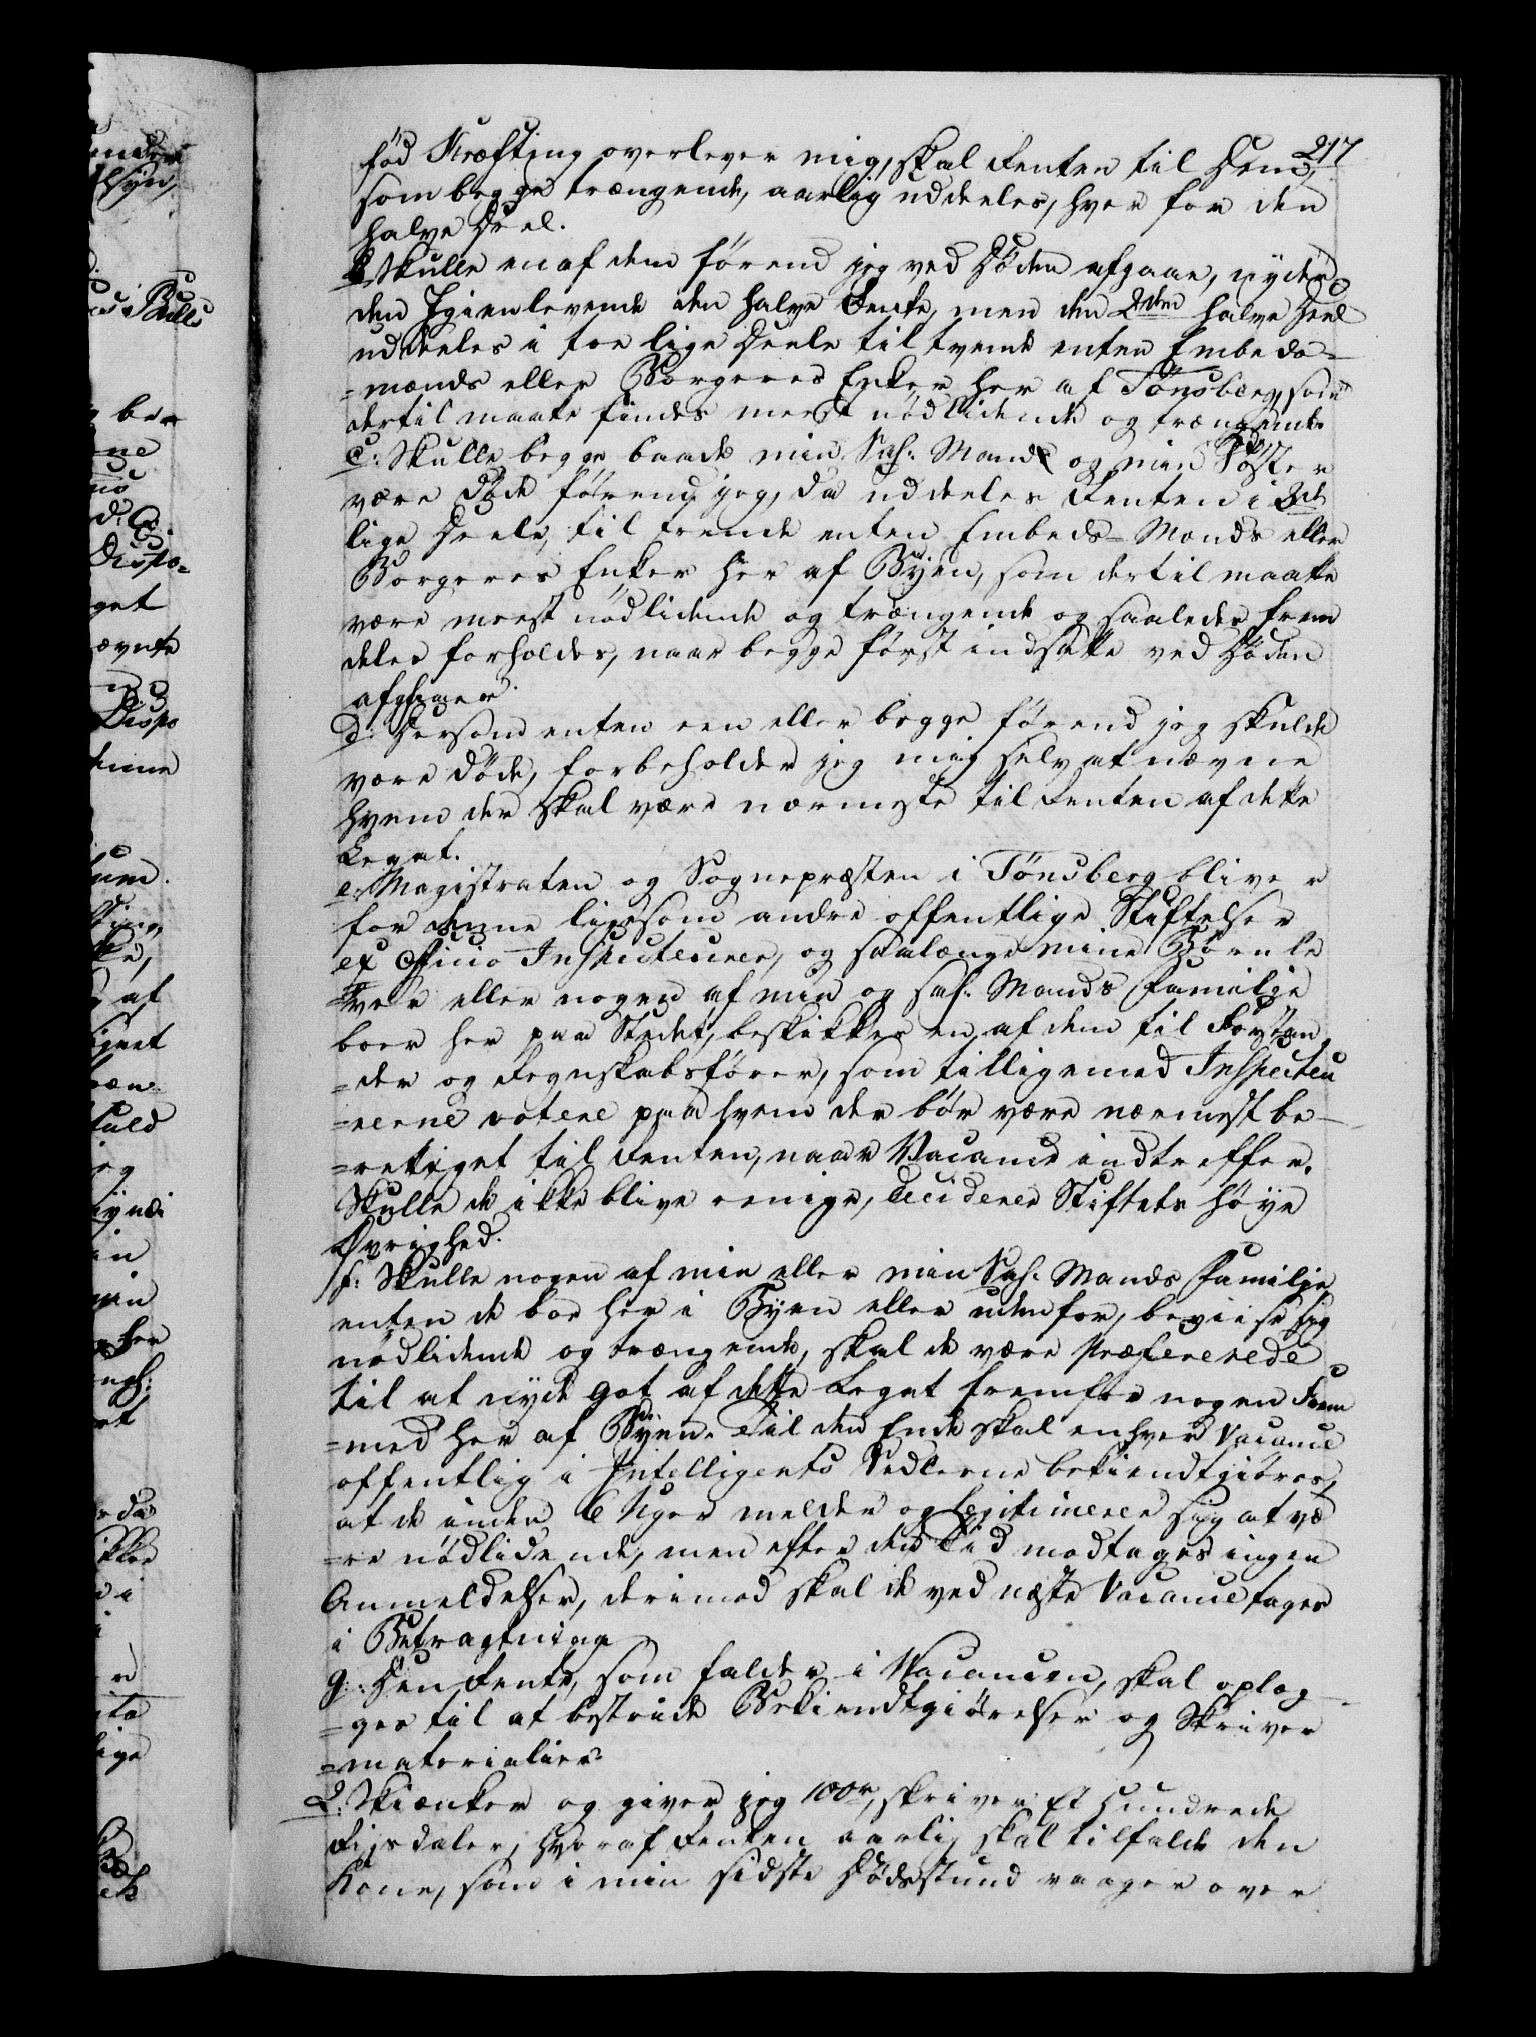 217
fød Kræfting overlever mig, skal Renten til Dem,
som begge trængende, aarlig uddeeles, hver for den
halve Deel.
b. Skulle en af dem førend jeg ved Døden afgaae, nyder
den Igienlevende den halve Rente, men den 2den halve Deel
uddeeles i toe lige Deele til tvende enten Embeds=
=mænds eller Borgeres Enker her af Tønsberg, som
dertil maatte findes meest nødlidende og trængende.
c: Skulle begge baade min Sal: Mands og min Søster
være døde førend jeg, da uddeeles Renten i 3de
lige Deele, til trende enten Embeds-Mænds eller
Borgeres Enker her af Byen, som dertil maatte
være meest nødlidende og trængende og saaledes frem
deles forholdes, naar begge først indsatte ved Døden
afgaaer.
d: Dersom enten een eller begge førend jeg skulde
være døde, forbeholder jeg mig selv at nævne
hvem der skal være nærmeste til Renten af dette
Legat.
e: Magistraten og Sognepræsten i Tønsberg bliver
for denne ligesom andre offentlige Stiftelser
ex officio Inspecteurer, og saalænge mine Børn le
=ver eller nogen af min og sal: Mands Familie
boer her paa Stedet, beskikkes en af dem til Forstan
=der og Regnskabsfører, som tilligemed Inspecteu
=rerne votere paa hvem der bør være nærmest be=
=rettiget til Renten, naar Vacance indtreffer.
Skulle de ikke blive eenige, deciderer Stiftets høye
Øvrighed.
f: Skulle nogen af min eller min Sal: Mands Familie
enten de boe her i Byen eller udenfor, beviise sig
nødlidende og trængende, skal de være Præfererede
til at nyde got af dette Legat fremfor nogen Frem
=med her af Byen. Til den Ende skal enhver Vacance
offentlig i Intelligents Sedlerne bekiendtgiøres,
at de inden 6 Uger melder og Legitimerer sig at væ
=re nødlidende, men efter den Tid modtages ingen
Anmeldelser, derimod skal de ved næste Vacance tages
i Betragtning
g: Den Rente, som falder i Vacancen, skal oplæg=
=ges til at bestride Bekiendtgiørelser og Skriver
=materialier.
2: Skiænker og giver jeg 100 r, skriver Et Hundrede
Rigsdaler, hvoraf Renten aarlig skal tilfalde den
Kone, som i min sidste Dødsstund vaager over